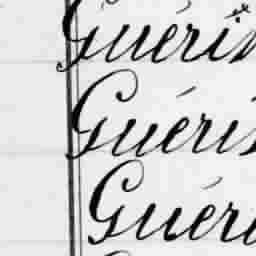 Guérin
Guéri
Guér